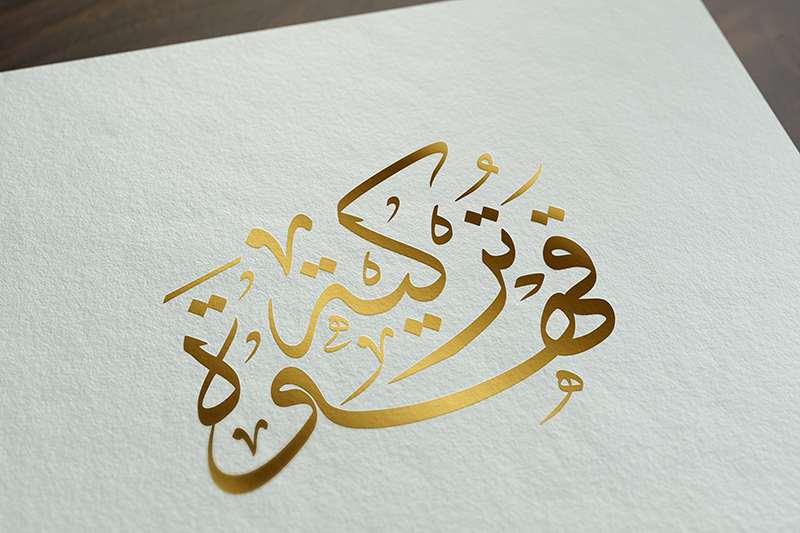 قهوة تركية